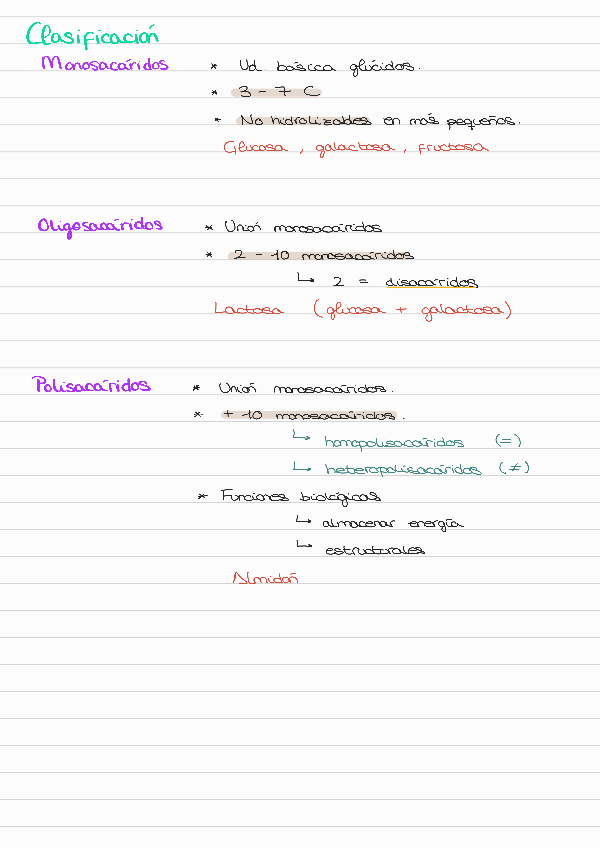 Clasificación
Monosacáridos * Ud. básica glúcidos.
* 3 - 7 C
* No hidrolizables en más pequeños.
Glucosa, galactosa, fructosa
Oligosacáridos * Unión monosacáridos
* 2 - 10 monosacáridos
↳ 2 = disacáridos
Lactosa (glucosa + galactosa)
Polisacáridos * Unión monosacáridos.
* + 10 monosacáridos.
↳ homopolisacáridos (=)
↳ heteropolisacáridos (≠)
* Funciones biológicas
↳ almacenar energía
↳ estructurales
Almidón